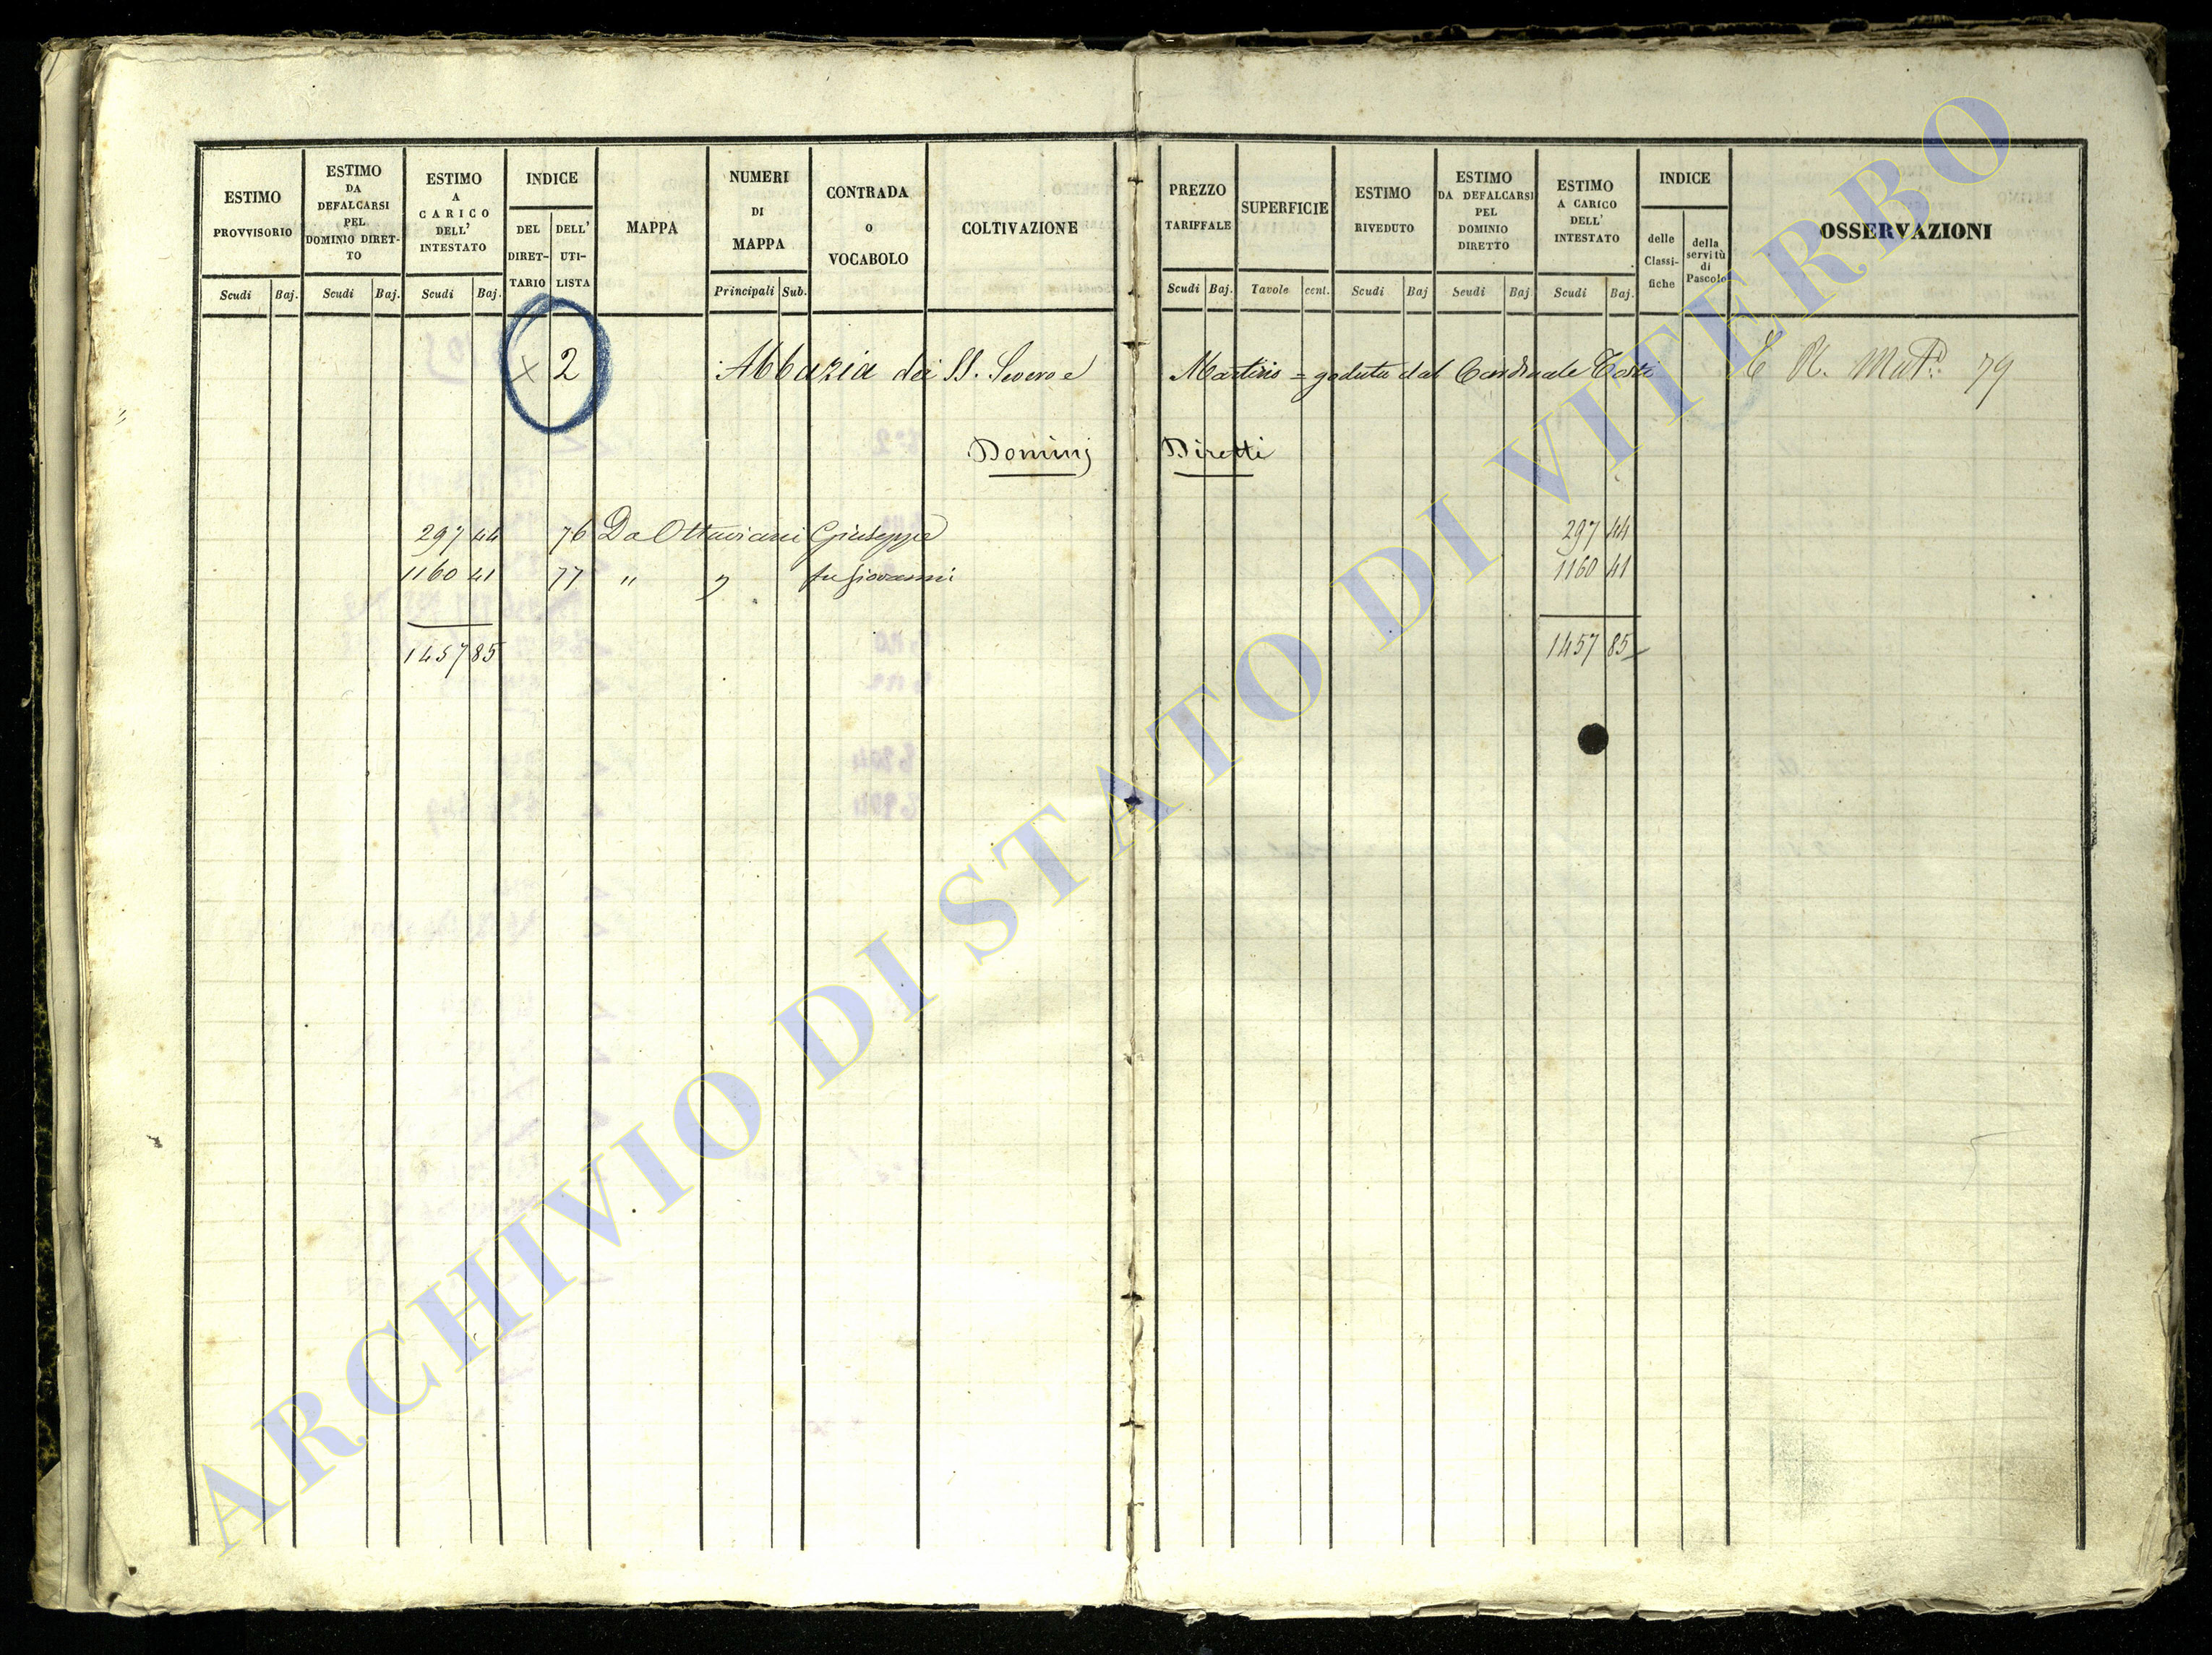 ESTIMO PROVVISORIO
Scudi Baj.
ESTIMO DA DEFALCARSI PEL DOMINIO DIRET-TO
Scudi Baj.
ESTIMO A CARICO DELL' INTESTATO
Scudi Baj.
INDICE
DEL DIRET-TARIO
DELL' UTI-LISTA
MAPPA
NUMERI DI MAPPA
Principali Sub.
CONTRADA o VOCABOLO
COLTIVAZIONE
PREZZO TARIFFALE
Scudi Baj.
SUPERFICIE
Tavole cent.
ESTIMO RIVEDUTO
Scudi Baj
ESTIMO DA DEFALCARSI PEL DOMINIO DIRETTO
Scudi Baj.
ESTIMO A CARICO DELL' INTESTATO
Scudi Baj.
INDICE
delle Classi-fiche
della servitù di Pascolo
OSSERVAZIONI
x 2 Abbazia dei SS. Severo e Martirio = goduta dal Cardinale 79
Dominj Diretti
297 44 76 Da Ottaviani Giuseppe 297 44
1160 41 77 " " fu Giovanni 1160 41
1457 85 1457 85
ARCHIVIO DI STATO DI VITERBO